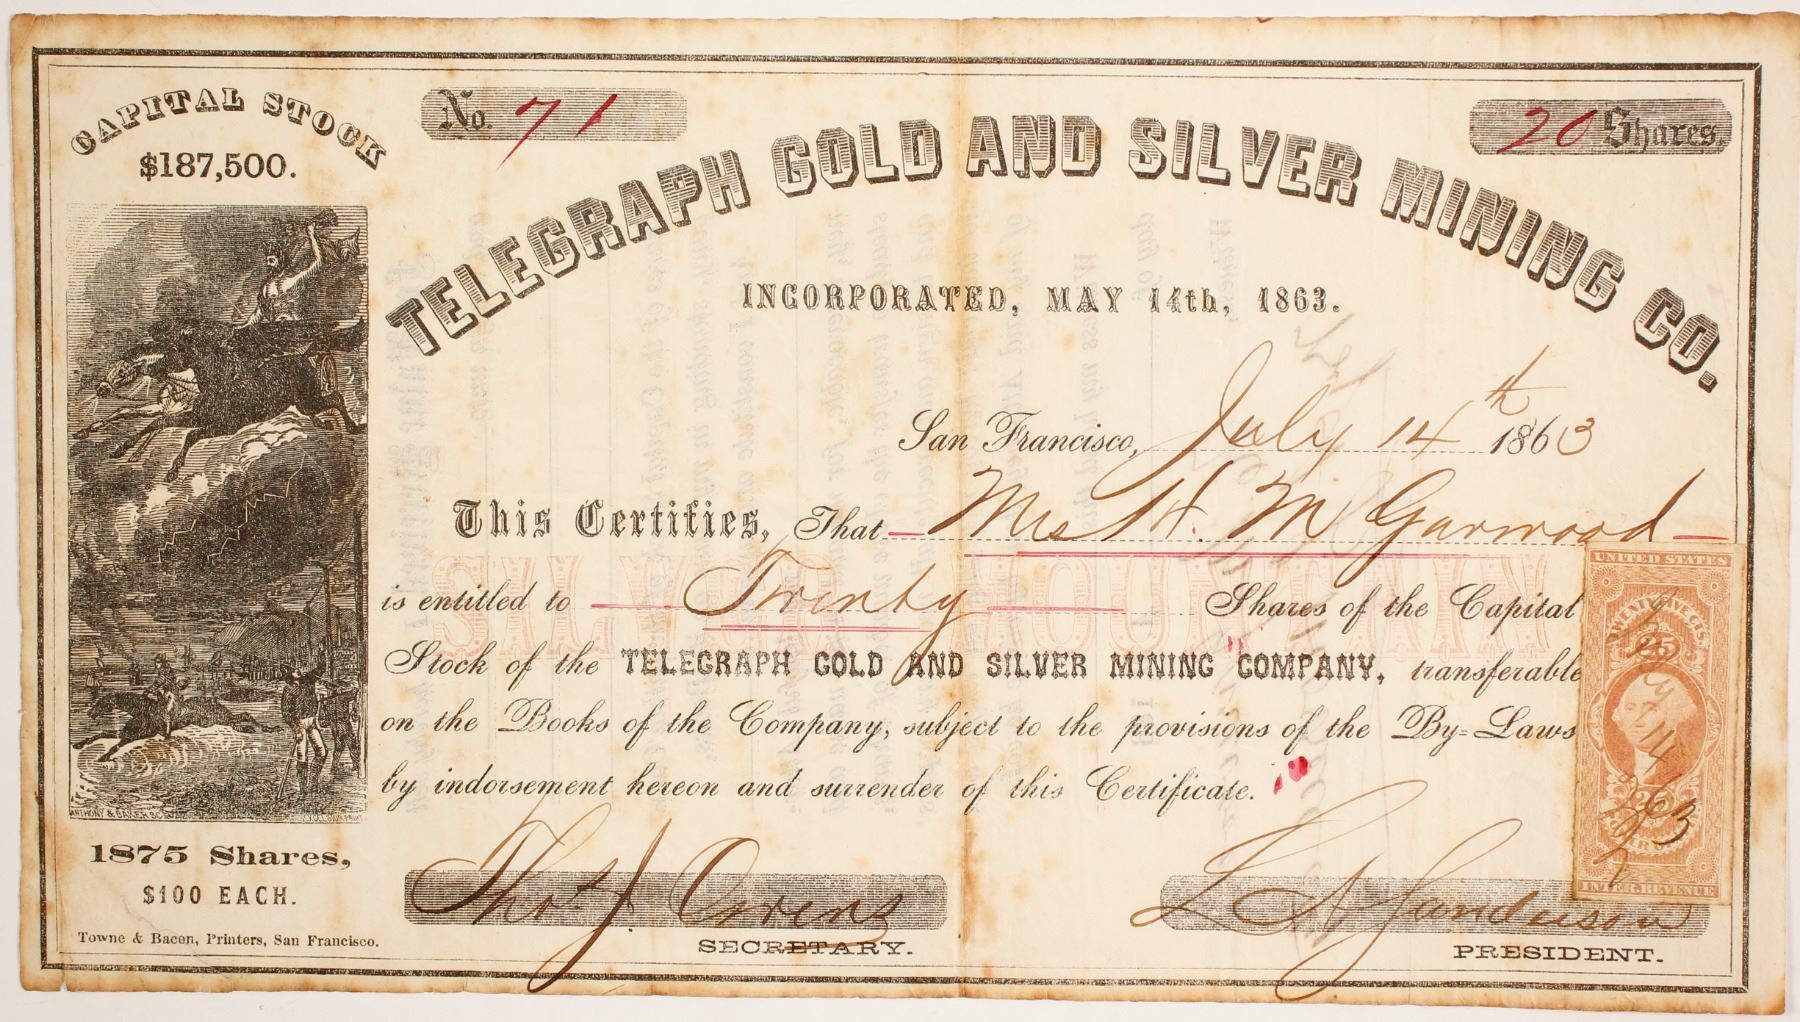 CAPITAL STOCK
$187,500.
No. 71
20 Shares.
TELEGRAPH GOLD AND SILVER MINING CO.
INCORPORATED, MAY 14th, 1863.
San Francisco, July 14th 1863
This Certifies, That Mrs H. M Garwood
SILVER MOUNTAIN
is entitled to Twenty Shares of the Capital
Stock of the TELEGRAPH GOLD AND SILVER MINING COMPANY, transferable
on the Books of the Company, subject to the provisions of the By-Laws
by indorsement hereon and surrender of this Certificate.
UNITED STATES
TWENTY FIVE CTS.
25
July 14
1863
INTER. REVENUE
ANTHONY & BAKER SC
EXCELSIOR PRINT.
1875 Shares,
$100 EACH.
Towne & Bacon, Printers, San Francisco.
Thos J. Owens
SECRETARY.
L A Sanderson
PRESIDENT.